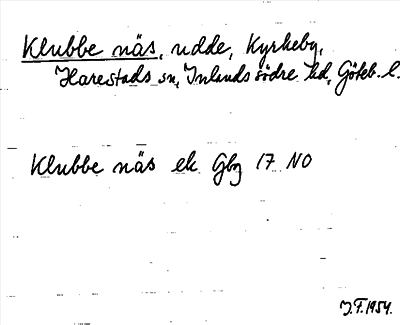 Klubbe näs, udde, Kyrkeby,
Harestads sn, Inlands södre hd, Göteb. l.
Klubbe näs ek Gbg 17 NO
J.F. 1954.